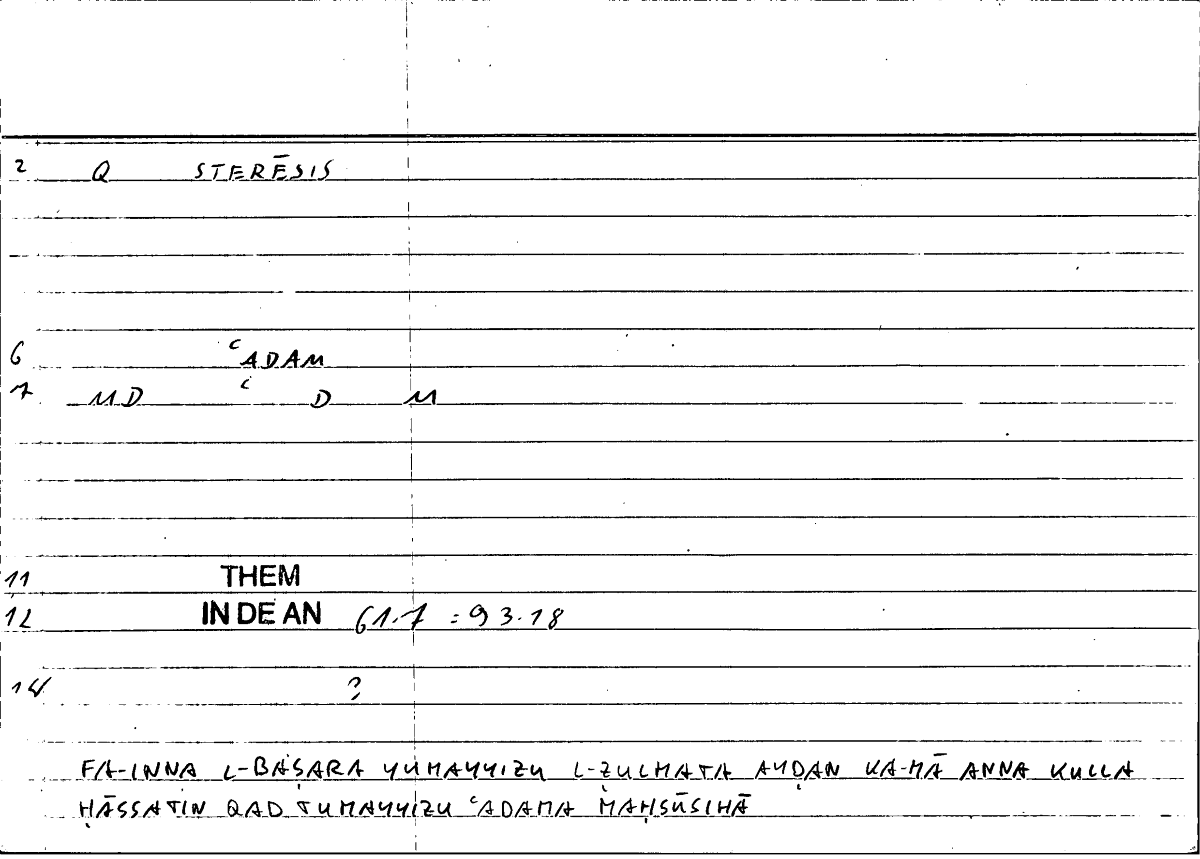 2 Q STERĒSIS
6 ʿADAM
7 MD ʿ D M
11 THEM
12 IN DE AN 61.7 = 93.18
14 ?
FA-INNA L-BAṢARA YUMAYYIZU L-ẒULMATA AYḌAN KA-MĀ ANNA KULLA
ḤĀSSATIN QAD TUMAYYIZU ʿADAMA MAḤSŪSIHĀ